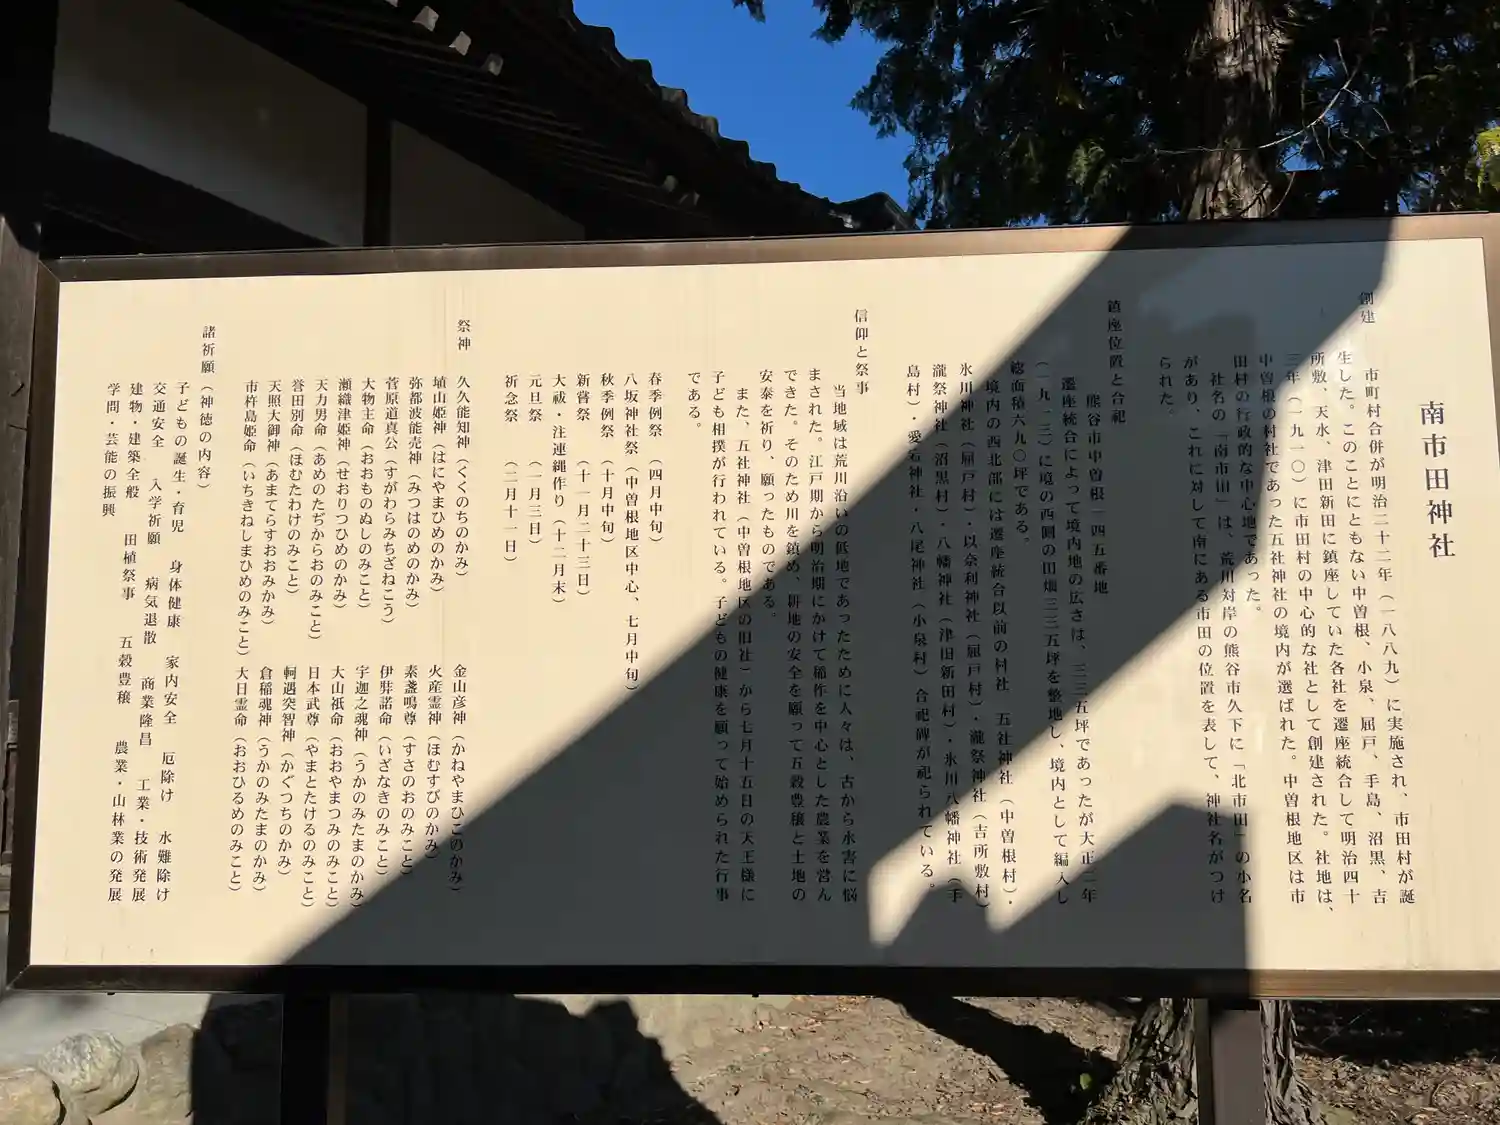 南市田神社
創建
市町村合併が明治二十二年（一八八九）に実施され、市田村が誕
生した。このことにともない中曽根、小泉、屈戸、手島、沼黒、吉
所敷、天水、津田新田に鎮座していた各社を遷座統合して明治四十
三年（一九一〇）に市田村の中心的な社として創建された。社地は、
中曽根の村社であった五社神社の境内が選ばれた。中曽根地区は市
田村の行政的な中心地であった。
社名の「南市田」は、荒川対岸の熊谷市久下に「北市田」の小名
があり、これに対して南にある市田の位置を表して、神社名がつけ
られた。
鎮座位置と合祀
熊谷市中曽根一四五番地
遷座統合によって境内地の広さは、三三五坪であったが大正三年
（一九一三）に境の西側の田畑三三五坪を整地し、境内として編入し
総面積六九〇坪である。
境内の西北部には遷座統合以前の村社　五社神社（中曽根村）・
氷川神社（屈戸村）・以奈利神社（屈戸村）・瀧祭神社（吉所敷村）
瀧祭神社（沼黒村）・八幡神社（津田新田村）・氷川八幡神社（手
島村）・愛宕神社・八尾神社（小泉村）合祀碑が祀られている。
信仰と祭事
当地域は荒川沿いの低地であったために人々は、古から水害に悩
まされた。江戸期から明治期にかけて稲作を中心とした農業を営ん
できた。そのため川を鎮め、耕地の安全を願って五穀豊穣と土地の
安泰を祈り、願ったものである。
また、五社神社（中曽根地区の旧社）から七月十五日の天王様に
子ども相撲が行われている。子どもの健康を願って始められた行事
である。
春季例祭　（四月中旬）
八坂神社祭（中曽根地区中心、七月中旬）
秋季例祭　（十月中旬）
新嘗祭　　（十一月二十三日）
大祓・注連縄作り（十二月末）
元旦祭　　（一月三日）
祈念祭　　（二月十一日）
祭神
久久能知神（くくのちのかみ）　金山彦神（かねやまひこのかみ）
埴山姫神（はにやまひめのかみ）　火産霊神（ほむすびのかみ）
弥都波能売神（みつはのめのかみ）　素盞鳴尊（すさのおのみこと）
菅原道真公（すがわらみちざねこう）　伊弉諾命（いざなきのみこと）
大物主命（おおものぬしのみこと）　宇迦之魂神（うかのみたまのかみ）
瀬織津姫神（せおりつひめのかみ）　大山祇命（おおやまつみのみこと）
天力男命（あめのたぢからおのみこと）　日本武尊（やまとたけるのみこと）
誉田別命（ほむたわけのみこと）　軻遇突智神（かぐつちのかみ）
天照大御神（あまてらすおおみかみ）　倉稲魂神（うかのみたまのかみ）
市杵島姫命（いちきねしまひめのみこと）　大日霊命（おおひるめのみこと）
諸祈願（神徳の内容）
子どもの誕生・育児　身体健康　家内安全　厄除け　水難除け
交通安全　入学祈願　病気退散　商業隆昌　工業・技術発展
建物・建築全般　田植祭事　五穀豊穣　農業・山林業の発展
学問・芸能の振興